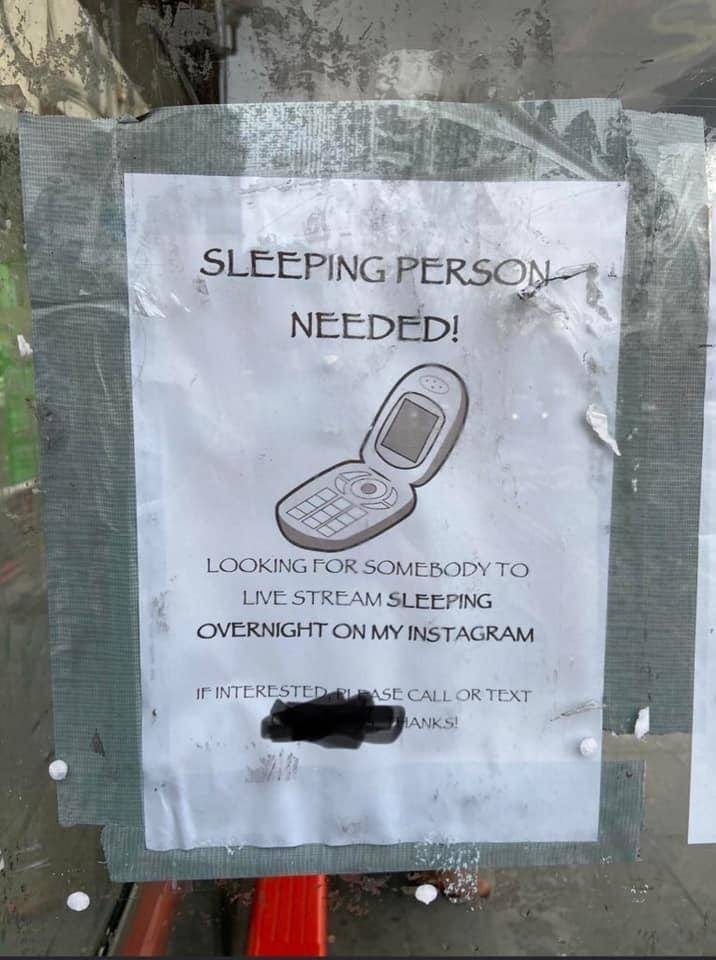 SLEEPING PERSON
NEEDED!
LOOKING FOR SOMEBODY TO
LIVE STREAM SLEEPING
OVERNIGHT ON MY INSTAGRAM
IF INTERESTED, PLEASE CALL OR TEXT
THANKS!